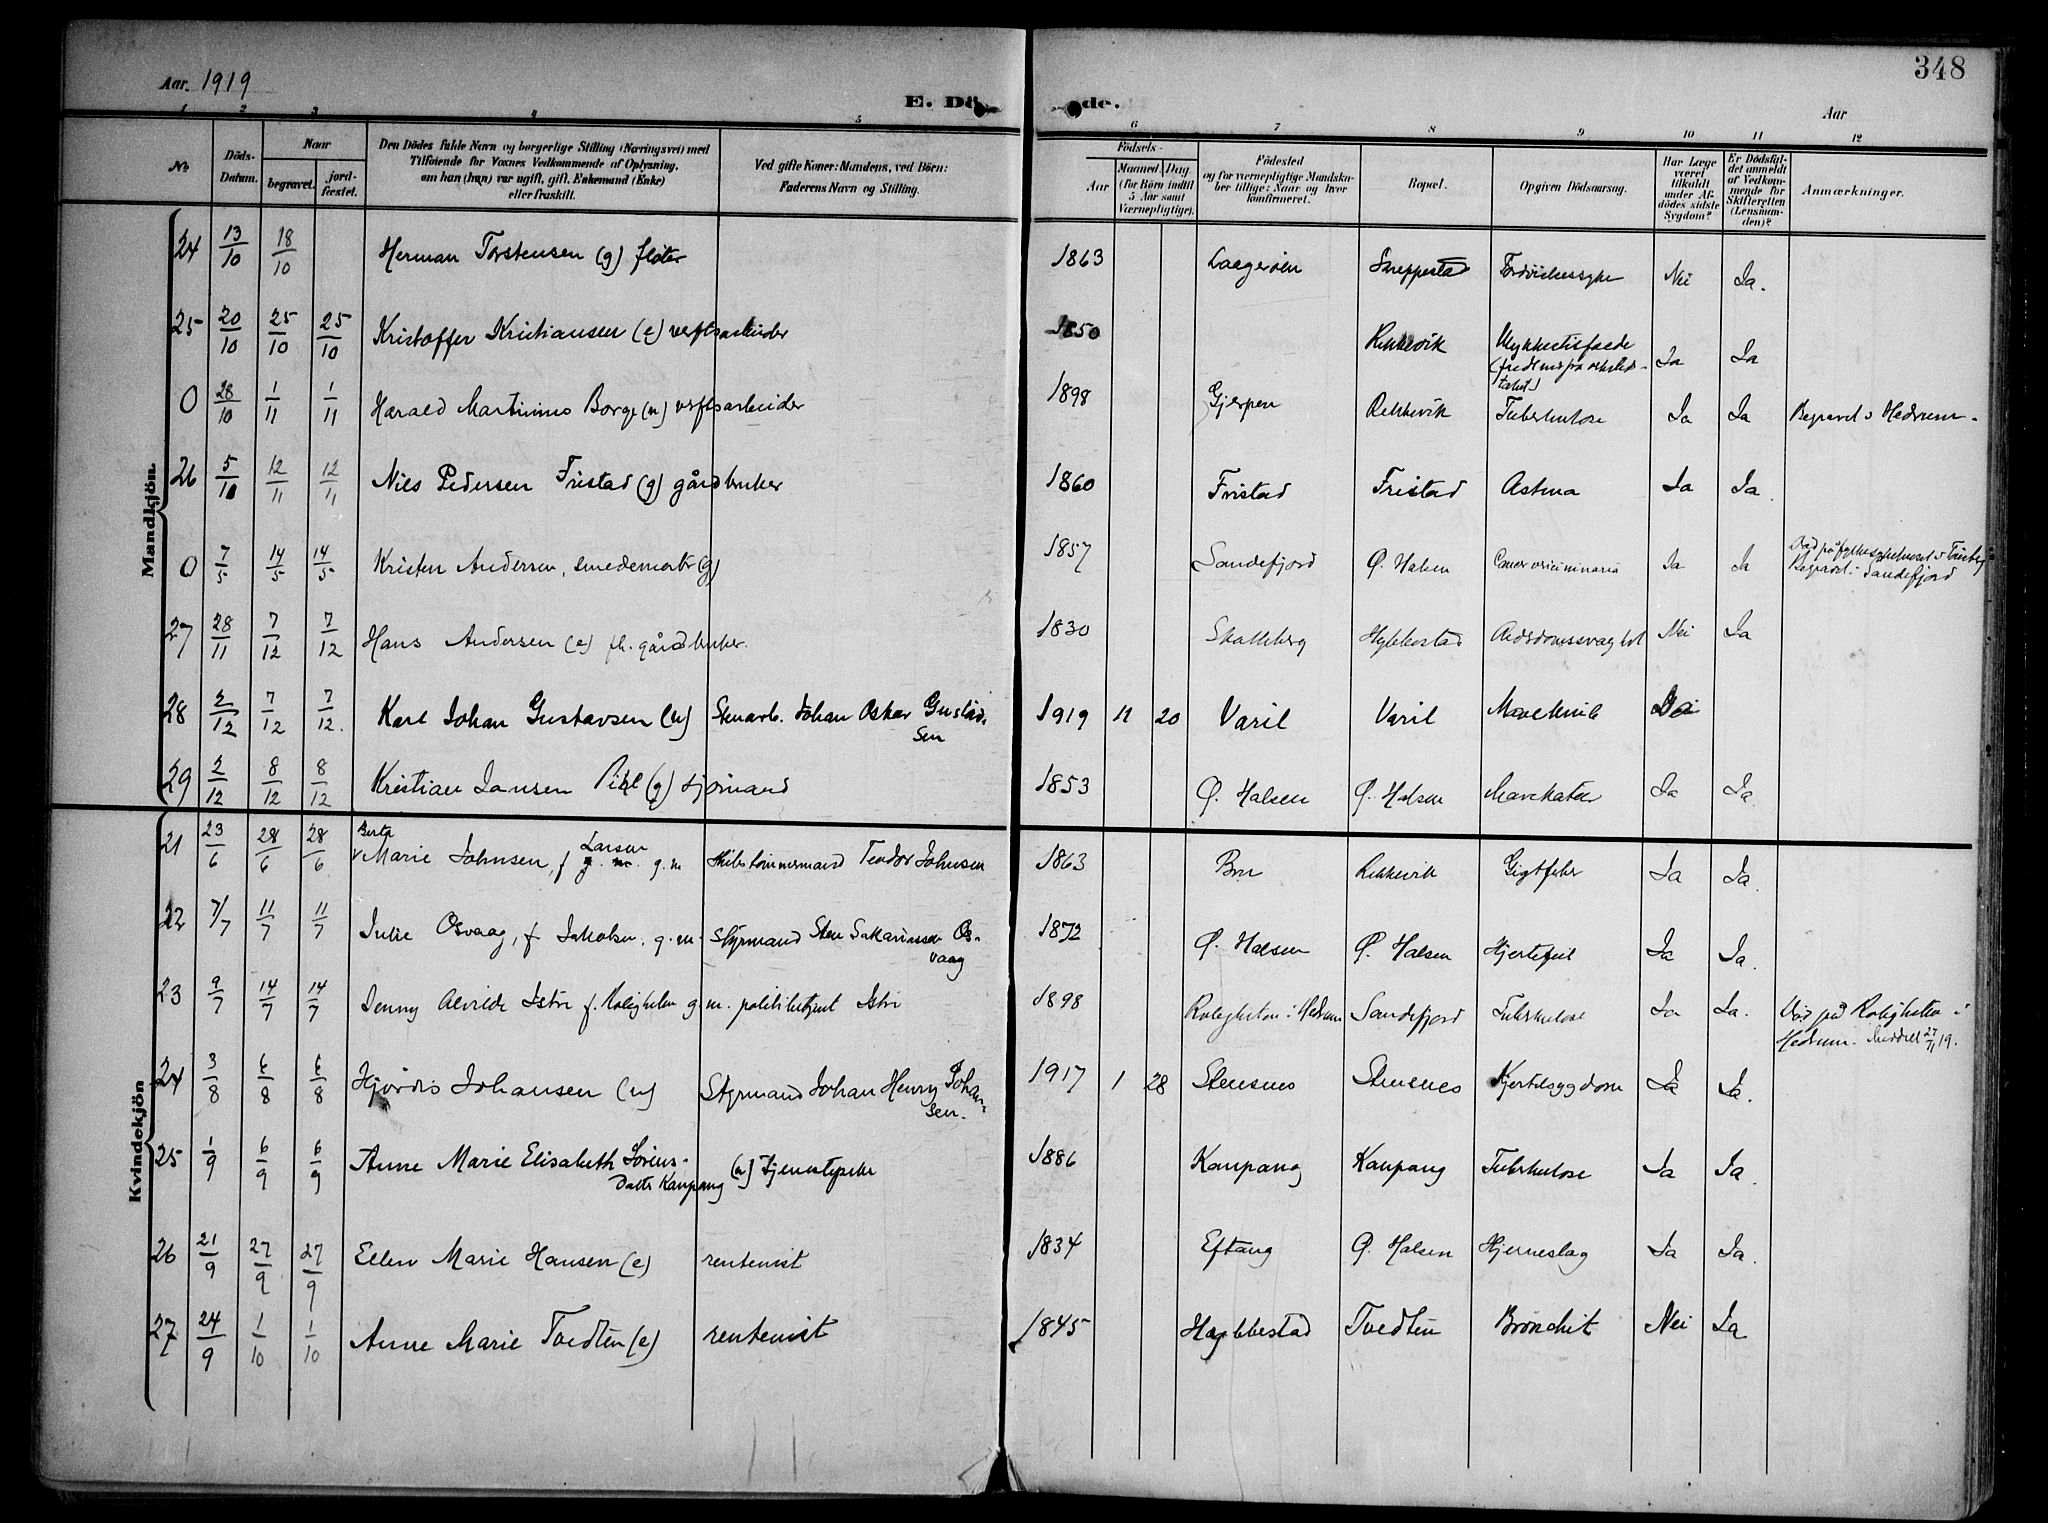 348
Aar. 1919
E. Dö de.
Aar
1 2 3 4 5 6 7 8 9 10 11 12
No.
Döds-
Datum.
Naar
begravet.
jord-
fæstet.
Den Dödes fulde Navn og borgerlige Stilling (Næringsvei) med
Tilföiende for Voxnes Vedkommende af Oplysning,
om han (hun) var ugift, gift, Enkemand (Enke)
eller fraskilt.
Ved gifte Koner: Mandens, ved Börn:
Faderens Navn og Stilling.
Födsels-
Aar
Maaned. Dag
(for Börn indtil
5 Aar samt
Værnepligtige).
Födested
og for værnepligtige Mandska-
ber tillige: Naar og hvor
konfirmeret.
Bopæl.
Opgiven Dödsaarsag.
Har Læge
været
tilkaldt
under Af-
dödes sidste
Sygdom?
Er Dödsfal-
det anmeldt
af Vedkom-
mende for
Skifteretten
(Lensman-
den)?
Anmærkninger.
Mandkjön.
24 13/10 18/10 Herman Torstensen (g) fløter 1863 Laagerøien Nei Ja.
25 20/10 25/10 25/10 Kristoffer Kristiansen (e) verftsarbeider 1850 Rekkevik Ulykkestilfælde Ja Ja
0 28/10 1/11 1/11 Harald Martinius Borge (u) verftsarbeider 1898 Gjerpen Rekkevik Tuberkulose Ja Ja Begravet i Hedrum.
26 5/11 12/11 12/11 Niels Pedersen Fristad (g) gårdbruker 1860 Fristad Fristad Astma Ja Ja.
0 7/5 14/5 14/5 Kristen Andersen, smedemester (g) 1857 Sandefjord Ø. Halsen Cancer Ja Ja
Begravet i Sandefjord
27 28/11 7/12 7/12 Hans Andersen (e) fh. gårdbruker. 1830 Skalleberg Hybbestad Alderdomssvaghet Nei Ja
28 2/12 7/12 7/12. Karl Johan Gustavsen (u) Stenarb. Johan Oskar Gustav-
sen
1919 11 20 Varil Varil
29 2/12 8/12 8/12 Kristian Jansen Pihl (g) sjømand 1853 Ø. Halsen Ø. Halsen Mavekatar Ja Ja
Kvindekjön
21 23/6 28/6 28/6 Berta
Marie Johnsen, f. Larsen g. m. Skibstømmermand Teodor Johnsen 1863 Rekkevik Gigtfeber Ja Ja.
22 7/7 11/7 11/7 Julie Osvaag, f. Jakobsen. g. m. Styrmand Sten Sakariassen Os-
vaag
1872 Ø. Halsen Ø. Halsen Hjertefeil Ja Ja.
23 9/7 14/7 14/7 Jenny Alvilde Istre f. Roligheten g. m. politibetjent Istre 1898 Roligheten i Hedrum Sandefjord Tuberkulose Ja Ja. Død på Roligheten i
Hedrum. Anmeldt 27/11 19.
24 3/8 6/8 6/8 Hjørdis Johansen (u) Styrmand Johan Henry Johan-
sen.
1917 1 28 Stensnes Stensnes Kjertelsygdom Ja Ja.
25 1/9 6/9 6/9 Anne Marie Elisabeth Sørens-
datter Kaupang (u) tjenestepike 1886 Kaupang Kaupang Tuberkulose Ja Ja.
26 21/9 27/9 27/9 Ellen Marie Hansen (e) rentenist 1834 Eftang Ø. Halsen Hjerneslag Ja Ja.
27 24/9 1/10 1/10 Anne Marie Tvedten (e) rentenist 1845 Hybbestad Tvedten Bronchit Nei Ja